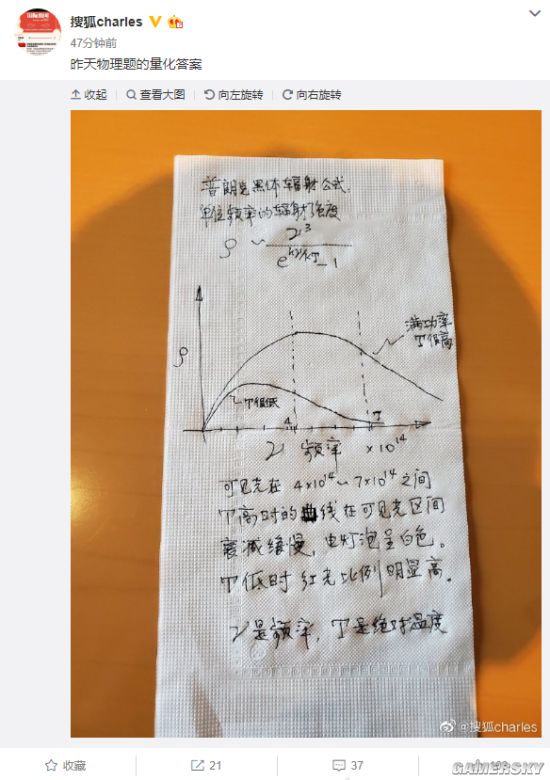 搜狐charles
47分钟前
昨天物理题的量化答案
收起 查看大图 向左旋转 向右旋转
普朗克黑体辐射公式.
单位频率的辐射强度
ρ ~ ν³ / (e^(hν/kT) - 1)
满功率
T很高
ρ
T很低
4 7
ν 频率 ×10¹⁴
可见光在 4×10¹⁴ ~ 7×10¹⁴ 之间
T高时的曲线在可见光区间
衰减缓慢，电灯泡呈白色。
T低时 红光比例明显高.
ν是频率，T是绝对温度
@搜狐charles
收藏 21 37
GAMERSKY